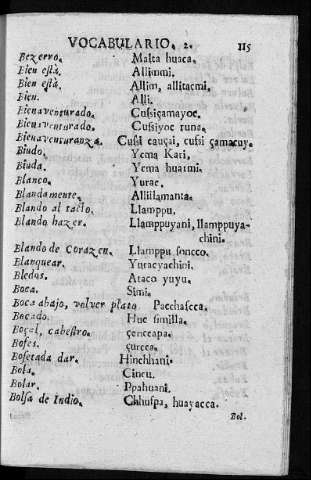 VOCABULARIO. 2. 115
Bezerro. Malta huaca.
Bien està. Allimmi.
Bien està. Allim, allitacmi.
Bien. Alli.
Bienaventurado. Cussiçamayoc.
Bienaventurado. Cussiyoc runa.
Bienaventuranza. Cussi cauçai, cussi çamacuy.
Biudo. Ycma Kari,
Biuda. Ycma huarmi.
Blanco. Yurac.
Blandamente. Allillamanta.
Blando al tacto. Llamppu.
Blando hazer. Llamppuyani, llamppuya-
chini.
Blando de Corazon. Llamppu soncco.
Blanquear. Yuracyachini.
Bledos. Ataco yuyu.
Boca. Simi.
Boca abajo, volver plato Pacchascca.
Bocado. Huc similla.
Boçal, cabestro. çenccapa.
Bofes. çurcca.
Bofetada dar. Hinchhani.
Bola. Cincu.
Bolar. Ppahuani.
Bolsa de Indio. Chhuspa, huayacca.
Bol.